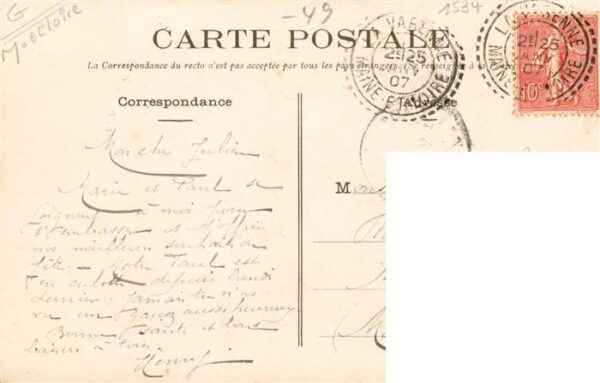 G
M et Loire
-49
1534
CARTE POSTALE
La Correspondance du recto n'est pas acceptée par tous les pays étrangers. (Se renseigner à la
Correspondance
Adresse
MAINE-ET-LOIRE
25
07
MAINE-ET-LOIRE
25
07
10
Mons
Mon cher Julien
Marie et Paul se
joignent à moi pour
t'embrasser et t'offrir
nos meilleurs souhaits de
fête. Notre Paul est
en culotte depuis lundi
dernier. Jamais tu n'as
vu un garçon aussi heureux
Bonne santé et bons
baisers à tous.
Henri